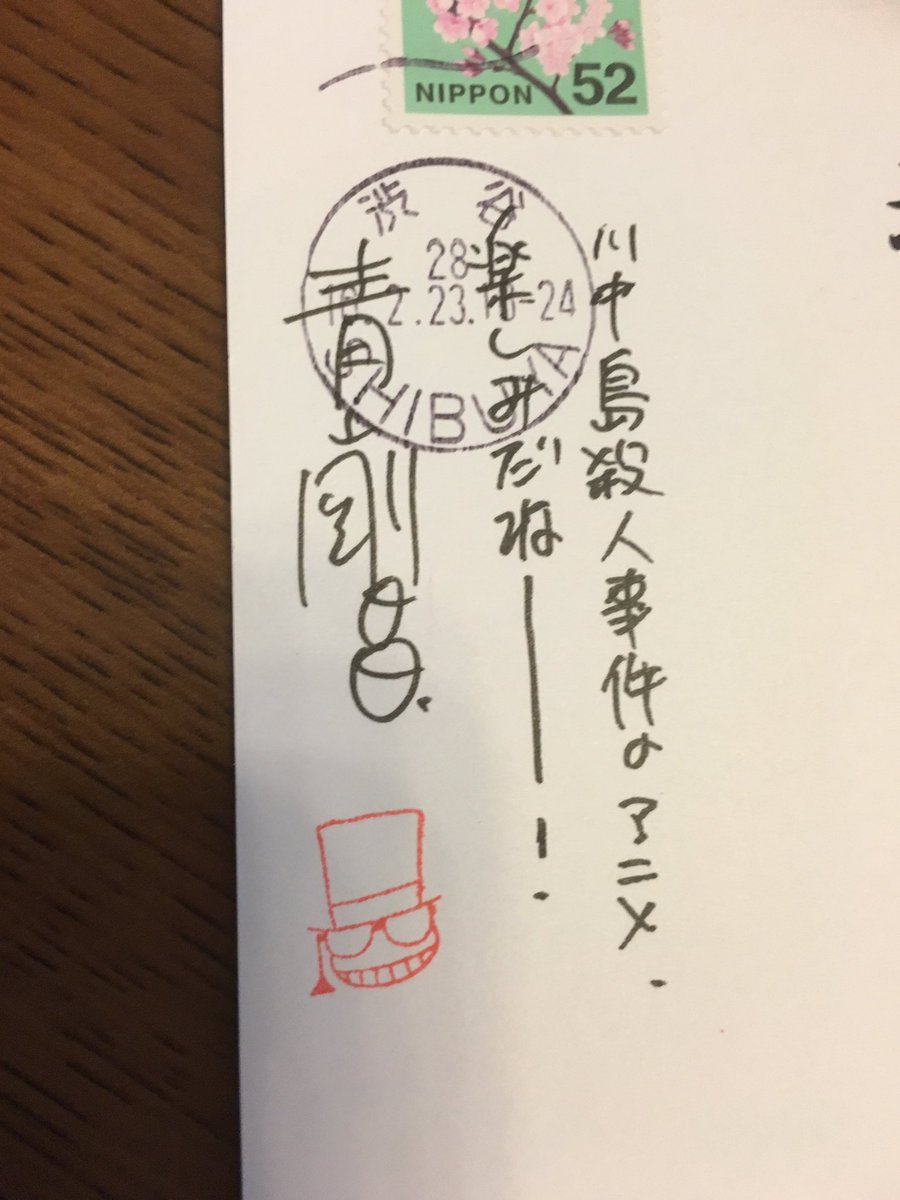 NIPPON 52
渋谷
28
23.
-24
SHIBUYA
川中島殺人事件のアニメ.
楽しみだねーー!
青山剛昌.